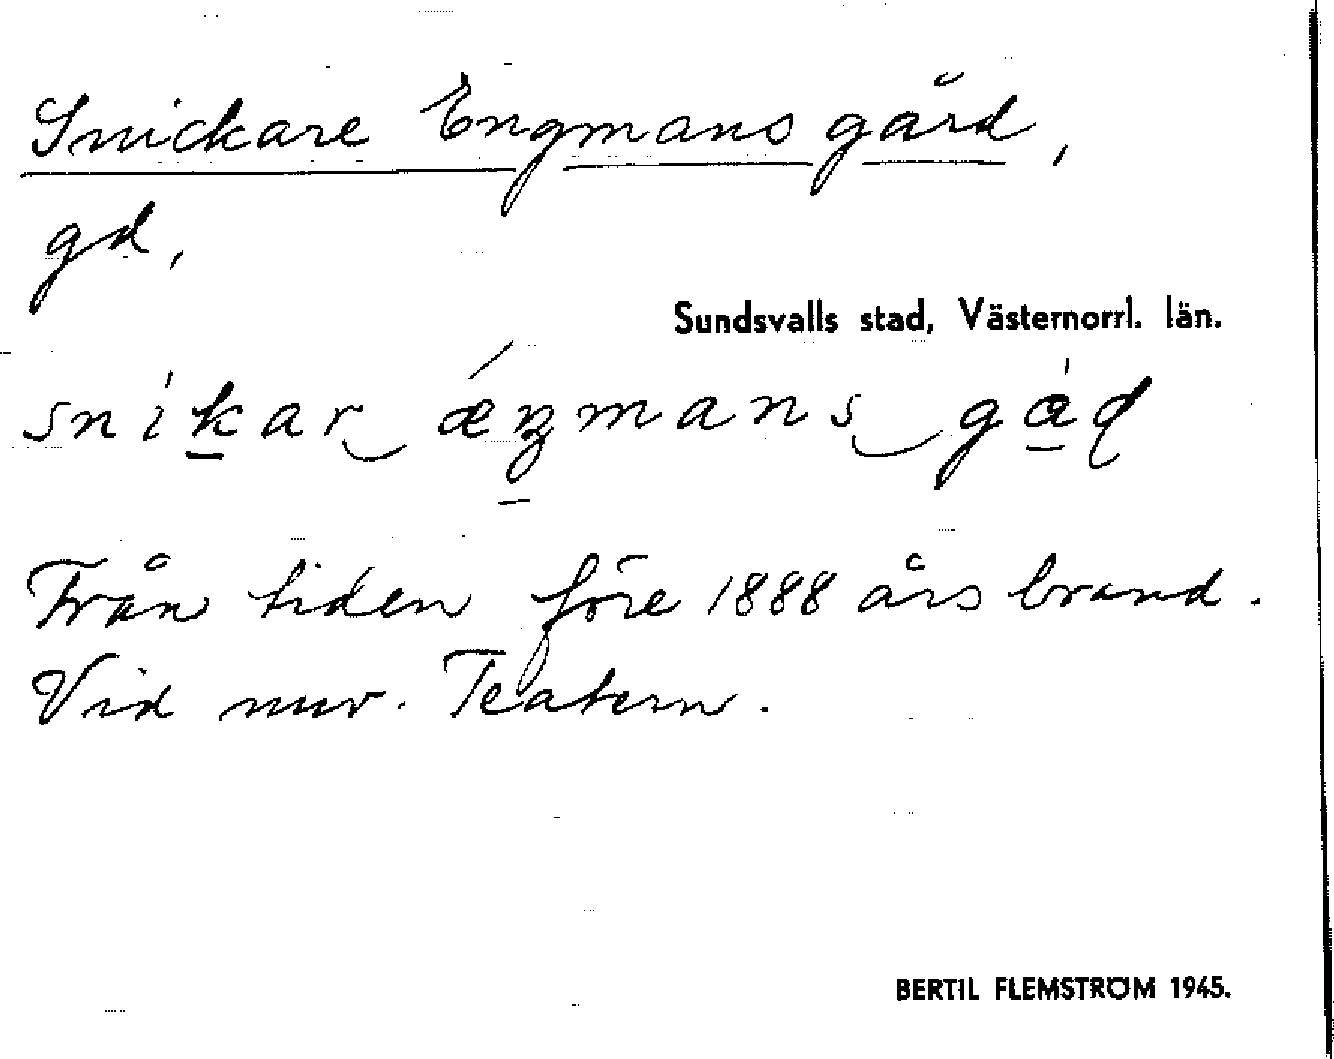 Snickare Engmans gård,
gd,
Sundsvalls stad, Västernorrl. län.
sníkar‿ǽŋmans‿gȧɖ
Från tiden före 1888 års brand.
Vid nuv. Teatern.
BERTIL FLEMSTRÖM 1945.